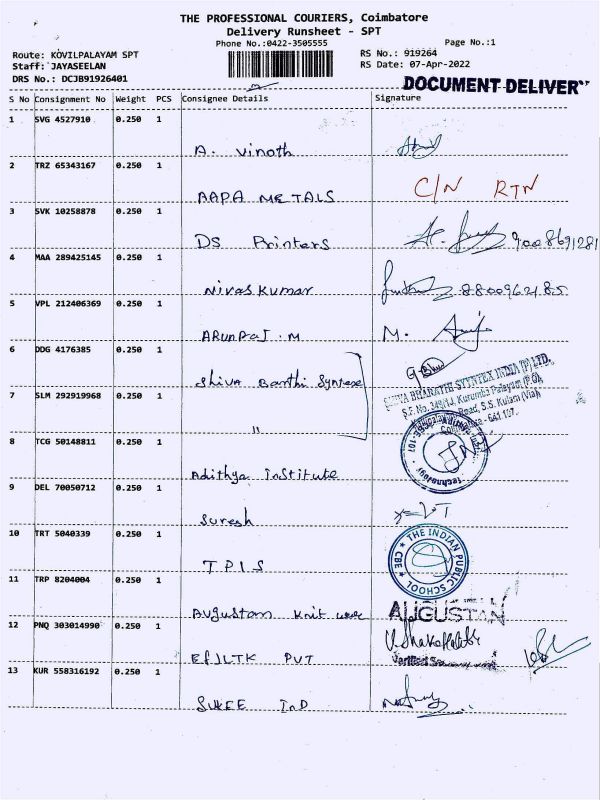 THE PROFESSIONAL COURIERS, Coimbatore
Delivery Runsheet - SPT
Phone No.:0422-3505555
Page No.:1
Route: KOVILPALAYAM SPT
RS No.: 919264
Staff: JAYASEELAN
RS Date: 07-Apr-2022
DRS No.: DCJB91926401
DOCUMENT DELIVER
S No Consignment No Weight PCS Consignee Details Signature
1 SVG 4527910 0.250 1
A. Vinoth
2 TRZ 65343167 0.250 1
AAPA METALS C/N RTN
3 SVK 10258878 0.250 1
DS Printers 9008691281
4 MAA 289425145 0.250 1
Nivas Kumar 8800962185
5 VPL 212406369 0.250 1
ARUNRAJ. M M.
6 DDG 4176385 0.250 1
Shiva Barthi Syntexe
SHIVA BHARATHI SYNTEX INDIA (P) LTD.
7 SLM 292919968 0.250 1
S.F. No. 349/1J, Kurumba Palayam (P.O),
Road, S.S. Kulam (Via),
- 641 107.
"
8 TCG 50148811 0.250 1
Adithya Institute
Technology
9 DEL 70050712 0.250 1
Suresh
10 TRT 5040339 0.250 1
TPIS
THE INDIAN PUBLIC SCHOOL
CBE
11 TRP 8204004 0.250 1
Augustan Knit wear
AUGUSTAN
12 PNQ 303014990 0.250 1
EFJLTK PVT
Verified
13 KUR 558316192 0.250 1
SUKEE InD